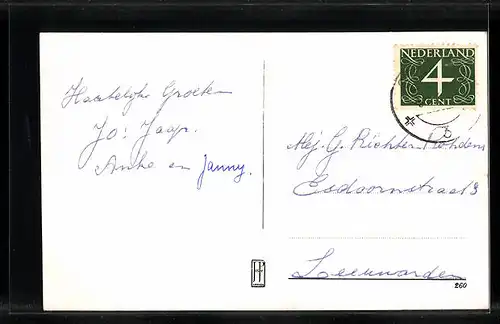 Hartelijke Groeten
Jo: Jaap.
Anke en Janny.
NEDERLAND
4
CENT
Mej. G. Richter-Rohdens
Esdoornstraat 9
Leeuwarden
260